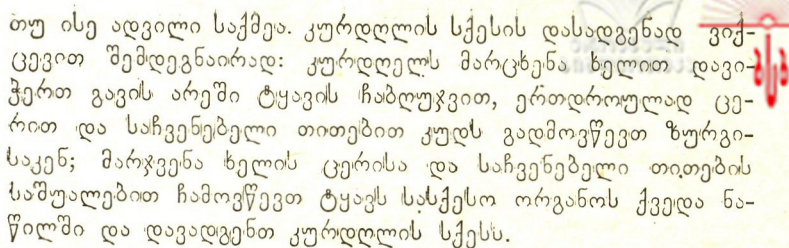 თუ ისე ადვილი საქმეა. კურდღლის სქესის დასადგენად ვიქ-
ცევით შემდეგნაირად: კურდღელს მარცხენა ხელით დავი-
ჭერთ გავის არეში ტყავის ჩაბღუჯვით, ერთდროულად ცე-
რით და საჩვენებელი თითებით კუდს გადმოვწევთ ზურგი-
საკენ; მარჯვენა ხელის ცერისა და საჩვენებელი თითების
საშუალებით ჩამოვწევთ ტყავს სასქესო ორგანოს ქვედა ნა-
წილში და დავადგენთ კურდღლის სქესს.